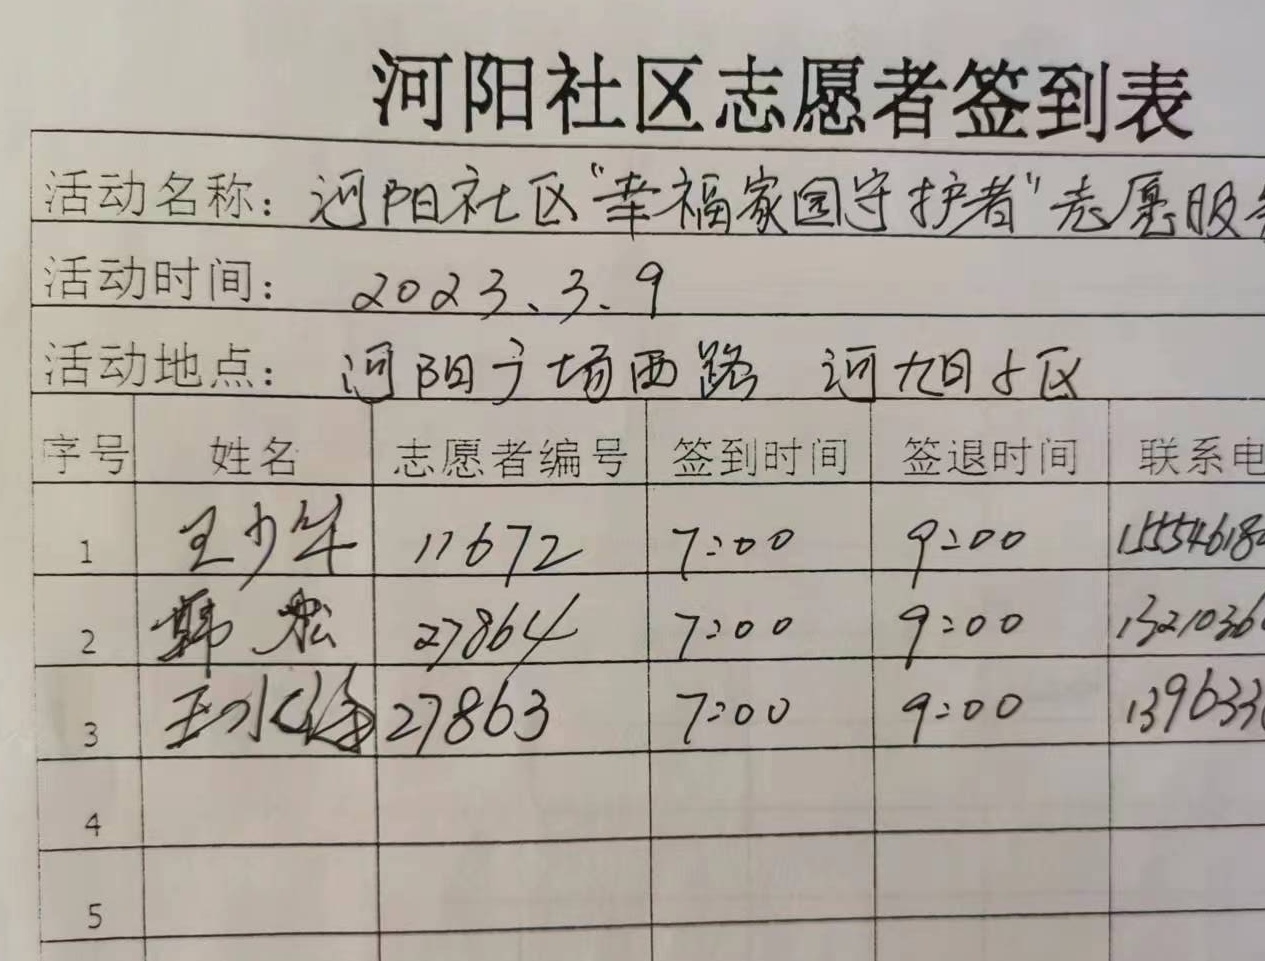 河阳社区志愿者签到表
活动名称：河阳社区“幸福家园守护者”志愿服务
活动时间： 2023、3、9
活动地点： 河阳广场西路 河旭小区
序号 姓名 志愿者编号 签到时间 签退时间 联系电
1 王少华 11672 7:00 9:00 15554618
2 韩松 27864 7:00 9:00 1321036
3 王 27863 7:00 9:00 139633
4
5